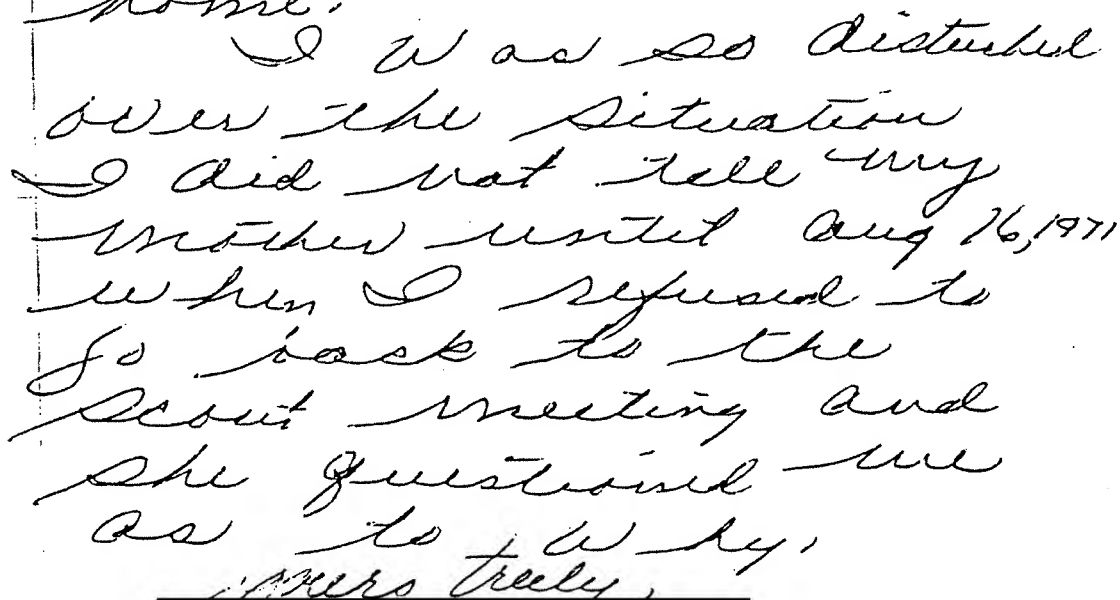 home.
I was so disturbed
over the situation
I did not tell my
mother until Aug 16, 1971
when I refused to
go back to the
scout meeting and
she questioned me
as to why.
yours truly,